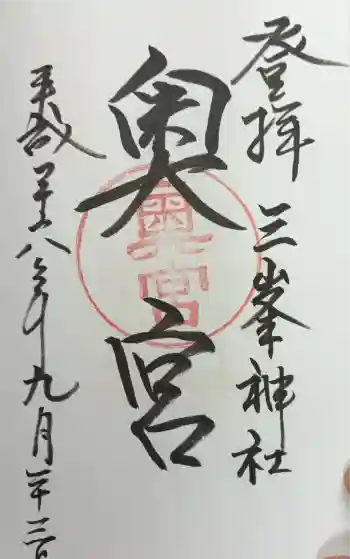 登拝 三峯神社
奥宮
奥宮
平成二十八年九月二十三日